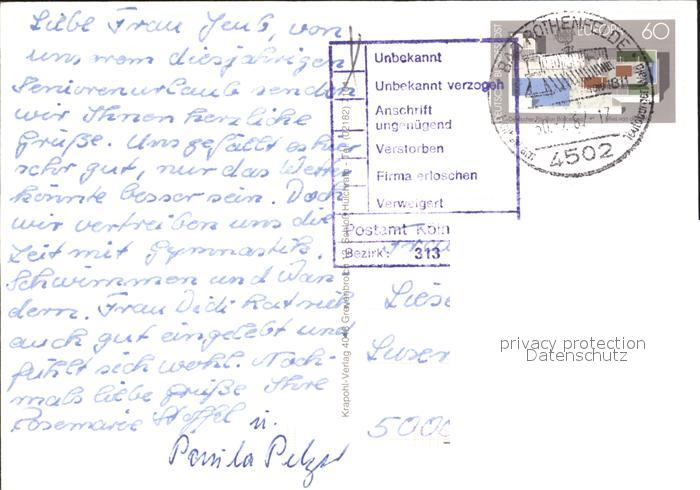 Liebe Frau Jeuß, von
uns vom diesjährigen
Seniorenurlaub senden
wir Ihnen herzliche
Grüße. Uns gefällt es hier
sehr gut, nur das Wetter
könnte besser sein. Doch
wir vertreiben uns die
Zeit mit Gymnastik,
Schwimmen und Wan
dern. Frau Didi hat sich
auch gut eingelebt und
fühlt sich wohl. Noch-
mals liebe Grüße Ihre
Rosemarie Stoffel u.
Pamila
Unbekannt
Unbekannt verzogen
Anschrift
ungenügend
Verstorben
Firma erloschen
Verweigert
Postamt Köln
Bezirk: 313
Krapohl-Verlag 4048 Grevenbroich
DEUTSCHE BUNDESPOST
EUROPA 60
BAD ROTHENFELDE
4502
Frau
Liese
5000
privacy protection
Datenschutz